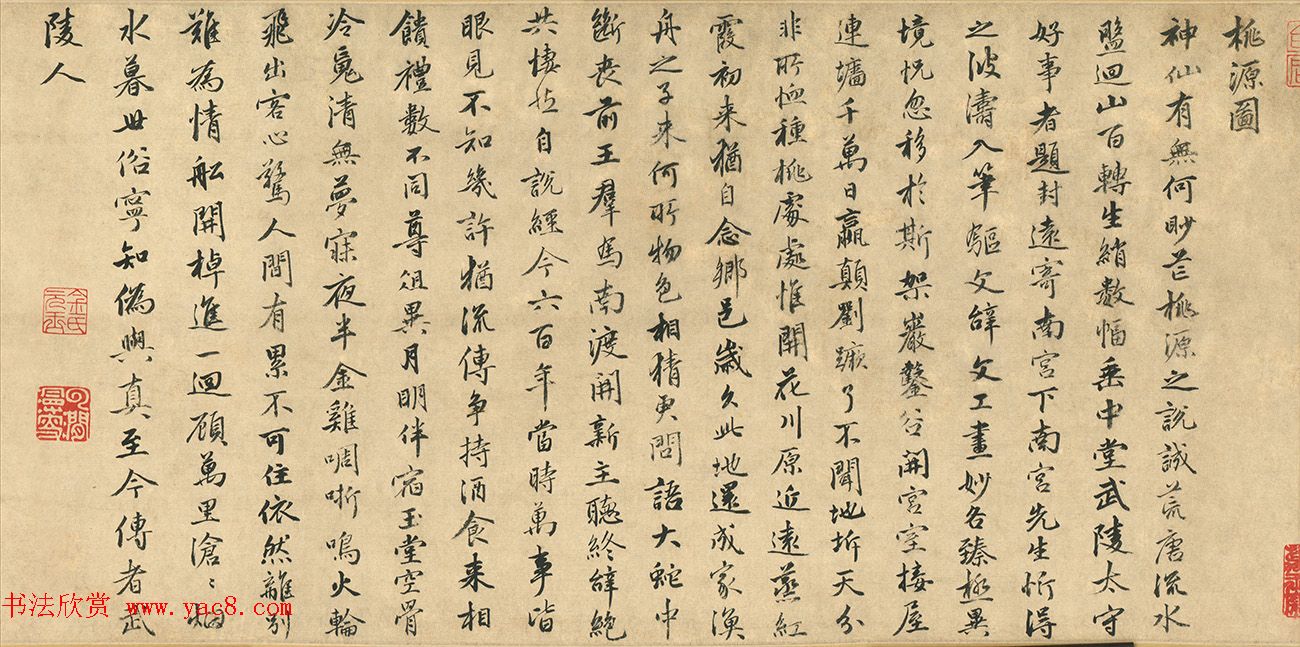 桃源圖
神仙有無何眇芒桃源之說誠荒唐流水
盤迴山百轉生綃數幅垂中堂武陵太守
好事者題封遠寄南宮下南宮先生忻得
之波濤入筆驅文辭文工畫妙各臻極異
境恍忽移於斯架巖鑿谷開宮室接屋
連墻千萬日嬴顛劉蹶了不聞地坼天分
非所恤種桃處處惟開花川原近遠蒸紅
霞初来猶自念鄉邑歲久此地還成家漁
舟之子来何所物色相猜更問語大蛇中
斷喪前王羣馬南渡開新主聽終辭絕
共悽然自說經今六百年當時萬事皆
眼見不知幾許猶流傳争持酒食来相
饋禮數不同尊俎異月明伴宿玉堂空骨
冷魂清無夢寐夜半金雞啁哳鳴火輪
飛出客心驚人間有累不可住依然離別
難為情船開棹進一迴顧萬里滄〻烟
水暮世俗寧知偽與真至今傳者武
陵人
金氏元玉
书法欣赏 www.yac8.com